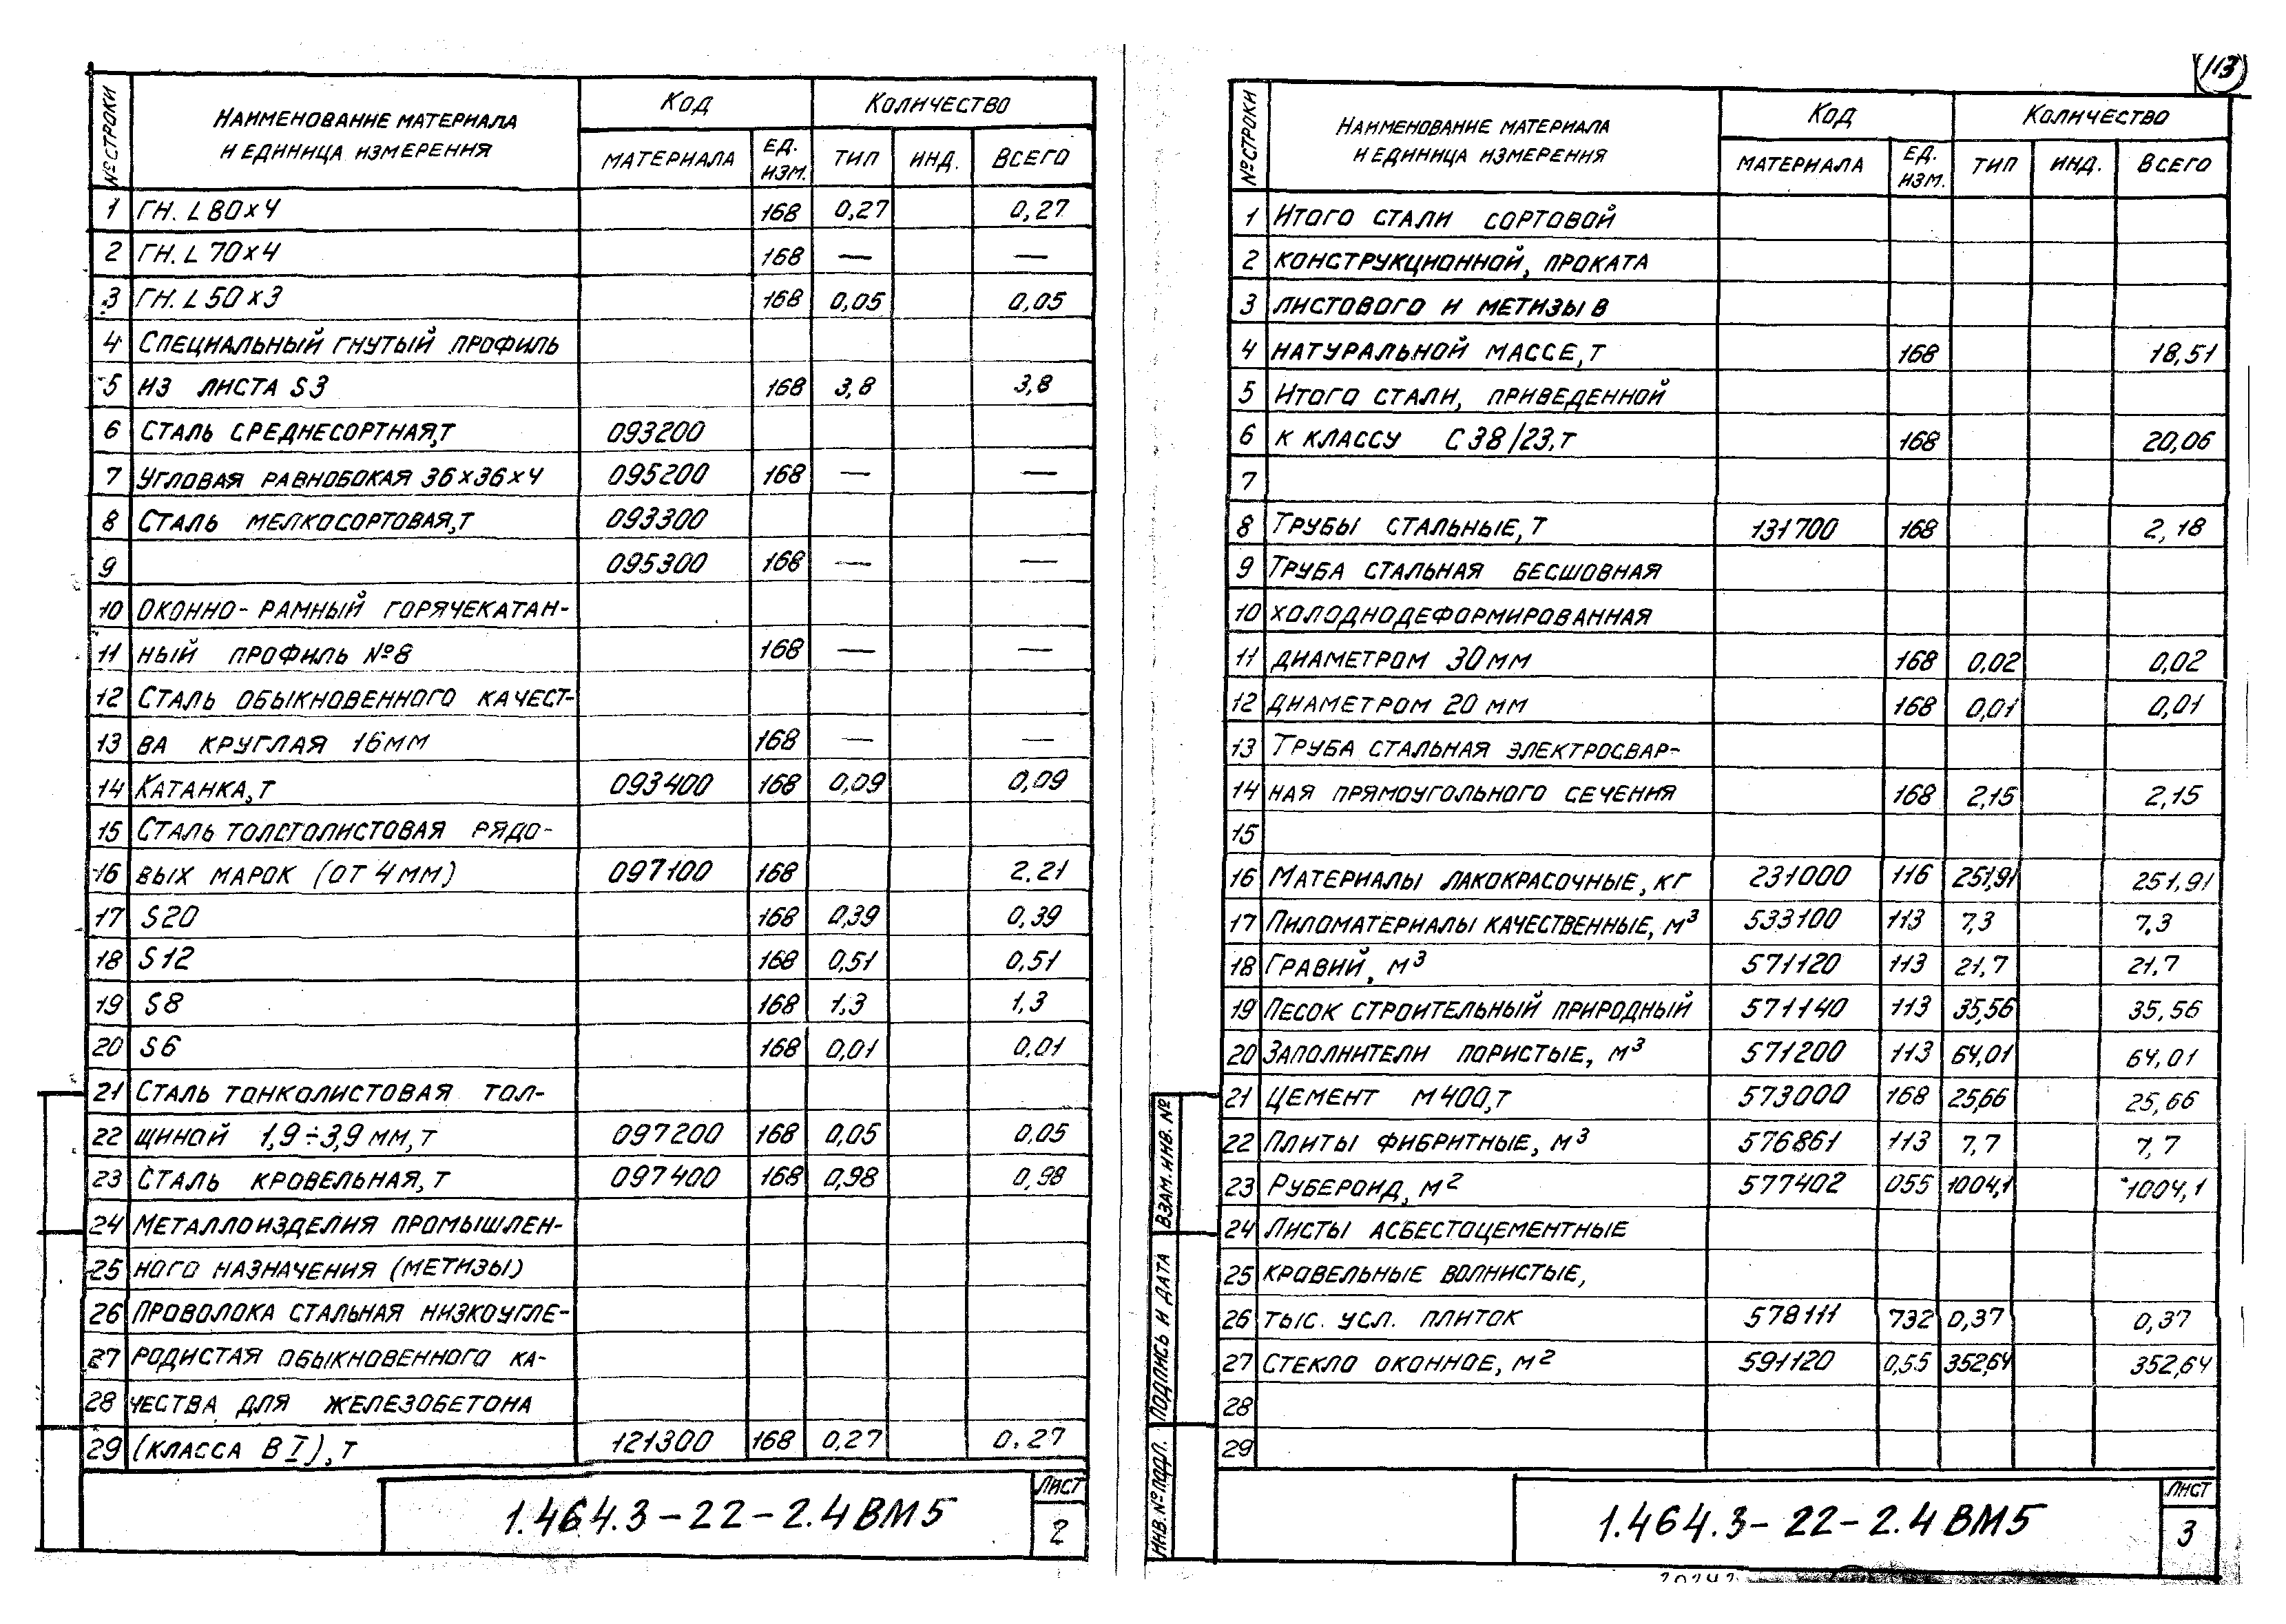 113
№ СТРОКИ НАИМЕНОВАНИЕ МАТЕРИАЛА И ЕДИНИЦА ИЗМЕРЕНИЯ КОД КОЛИЧЕСТВО
МАТЕРИАЛА ЕД. ИЗМ. ТИП ИНД. ВСЕГО
1 ГН. L 80×4 168 0,27 0,27
2 ГН. L 70×4 168 — —
3 ГН. L 50×3 168 0,05 0,05
4 СПЕЦИАЛЬНЫЙ ГНУТЫЙ ПРОФИЛЬ
5 ИЗ ЛИСТА S3 168 3,8 3,8
6 СТАЛЬ СРЕДНЕСОРТНАЯ,Т 093200
7 УГЛОВАЯ РАВНОБОКАЯ 36×36×4 095200 168 — —
8 СТАЛЬ МЕЛКОСОРТОВАЯ,Т 093300
9 095300 168 — —
10 ОКОННО-РАМНЫЙ ГОРЯЧЕКАТАН-
11 НЫЙ ПРОФИЛЬ №8 168 — —
12 СТАЛЬ ОБЫКНОВЕННОГО КАЧЕСТ-
13 ВА КРУГЛАЯ 16ММ 168 — —
14 КАТАНКА,Т 093400 168 0,09 0,09
15 СТАЛЬ ТОЛСТОЛИСТОВАЯ РЯДО-
16 ВЫХ МАРОК (ОТ 4ММ) 097100 168 2.21
17 S20 168 0,39 0,39
18 S12 168 0,51 0,51
19 S8 168 1,3 1,3
20 S6 168 0,01 0,01
21 СТАЛЬ ТОНКОЛИСТОВАЯ ТОЛ-
22 ЩИНОЙ 1,9÷3,9 ММ,Т 097200 168 0,05 0,05
23 СТАЛЬ КРОВЕЛЬНАЯ,Т 097400 168 0,98 0,98
24 МЕТАЛЛОИЗДЕЛИЯ ПРОМЫШЛЕН-
25 НОГО НАЗНАЧЕНИЯ (МЕТИЗЫ)
26 ПРОВОЛОКА СТАЛЬНАЯ НИЗКОУГЛЕ-
27 РОДИСТАЯ ОБЫКНОВЕННОГО КА-
28 ЧЕСТВА ДЛЯ ЖЕЛЕЗОБЕТОНА
29 (КЛАССА В I),Т 121300 168 0,27 0.27
1.464.3-22-2.4ВМ5
ЛИСТ
2
№ СТРОКИ НАИМЕНОВАНИЕ МАТЕРИАЛА И ЕДИНИЦА ИЗМЕРЕНИЯ КОД КОЛИЧЕСТВО
МАТЕРИАЛА ЕД. ИЗМ. ТИП ИНД. ВСЕГО
1 ИТОГО СТАЛИ СОРТОВОЙ
2 КОНСТРУКЦИОННОЙ, ПРОКАТА
3 ЛИСТОВОГО И МЕТИЗЫ В
4 НАТУРАЛЬНОЙ МАССЕ,Т 168 18,51
5 ИТОГО СТАЛИ, ПРИВЕДЕННОЙ
6 К КЛАССУ С38/23,Т 168 20,06
7
8 ТРУБЫ СТАЛЬНЫЕ,Т 131700 168 2,18
9 ТРУБА СТАЛЬНАЯ БЕСШОВНАЯ
10 ХОЛОДНОДЕФОРМИРОВАННАЯ
11 ДИАМЕТРОМ 30ММ 168 0,02 0,02
12 ДИАМЕТРОМ 20 ММ 168 0,01 0,01
13 ТРУБА СТАЛЬНАЯ ЭЛЕКТРОСВАР-
14 НАЯ ПРЯМОУГОЛЬНОГО СЕЧЕНИЯ 168 2,15 2,15
15
16 МАТЕРИАЛЫ ЛАКОКРАСОЧНЫЕ, КГ 231000 116 251,91 251,91
17 ПИЛОМАТЕРИАЛЫ КАЧЕСТВЕННЫЕ, М³ 533100 113 7,3 7,3
18 ГРАВИЙ, М³ 571120 113 21,7 21,7
19 ПЕСОК СТРОИТЕЛЬНЫЙ ПРИРОДНЫЙ 571140 113 35,56 35,56
20 ЗАПОЛНИТЕЛИ ПОРИСТЫЕ, М³ 571200 113 64,01 64,01
21 ЦЕМЕНТ М400,Т 573000 168 25,66 25,66
22 ПЛИТЫ ФИБРИТНЫЕ, М³ 576861 113 7,7 7,7
23 РУБЕРОИД, М² 577402 055 1004,1 1004,1
24 ЛИСТЫ АСБЕСТОЦЕМЕНТНЫЕ
25 КРОВЕЛЬНЫЕ ВОЛНИСТЫЕ,
26 ТЫС. УСЛ. ПЛИТОК 578111 732 0,37 0,37
27 СТЕКЛО ОКОННОЕ, М² 591120 0,55 352,64 352,64
28
29
ИНВ. № ПОДЛ. ПОДПИСЬ И ДАТА ВЗАМ. ИНВ. №
1.464.3-22-2.4ВМ5
ЛИСТ
3